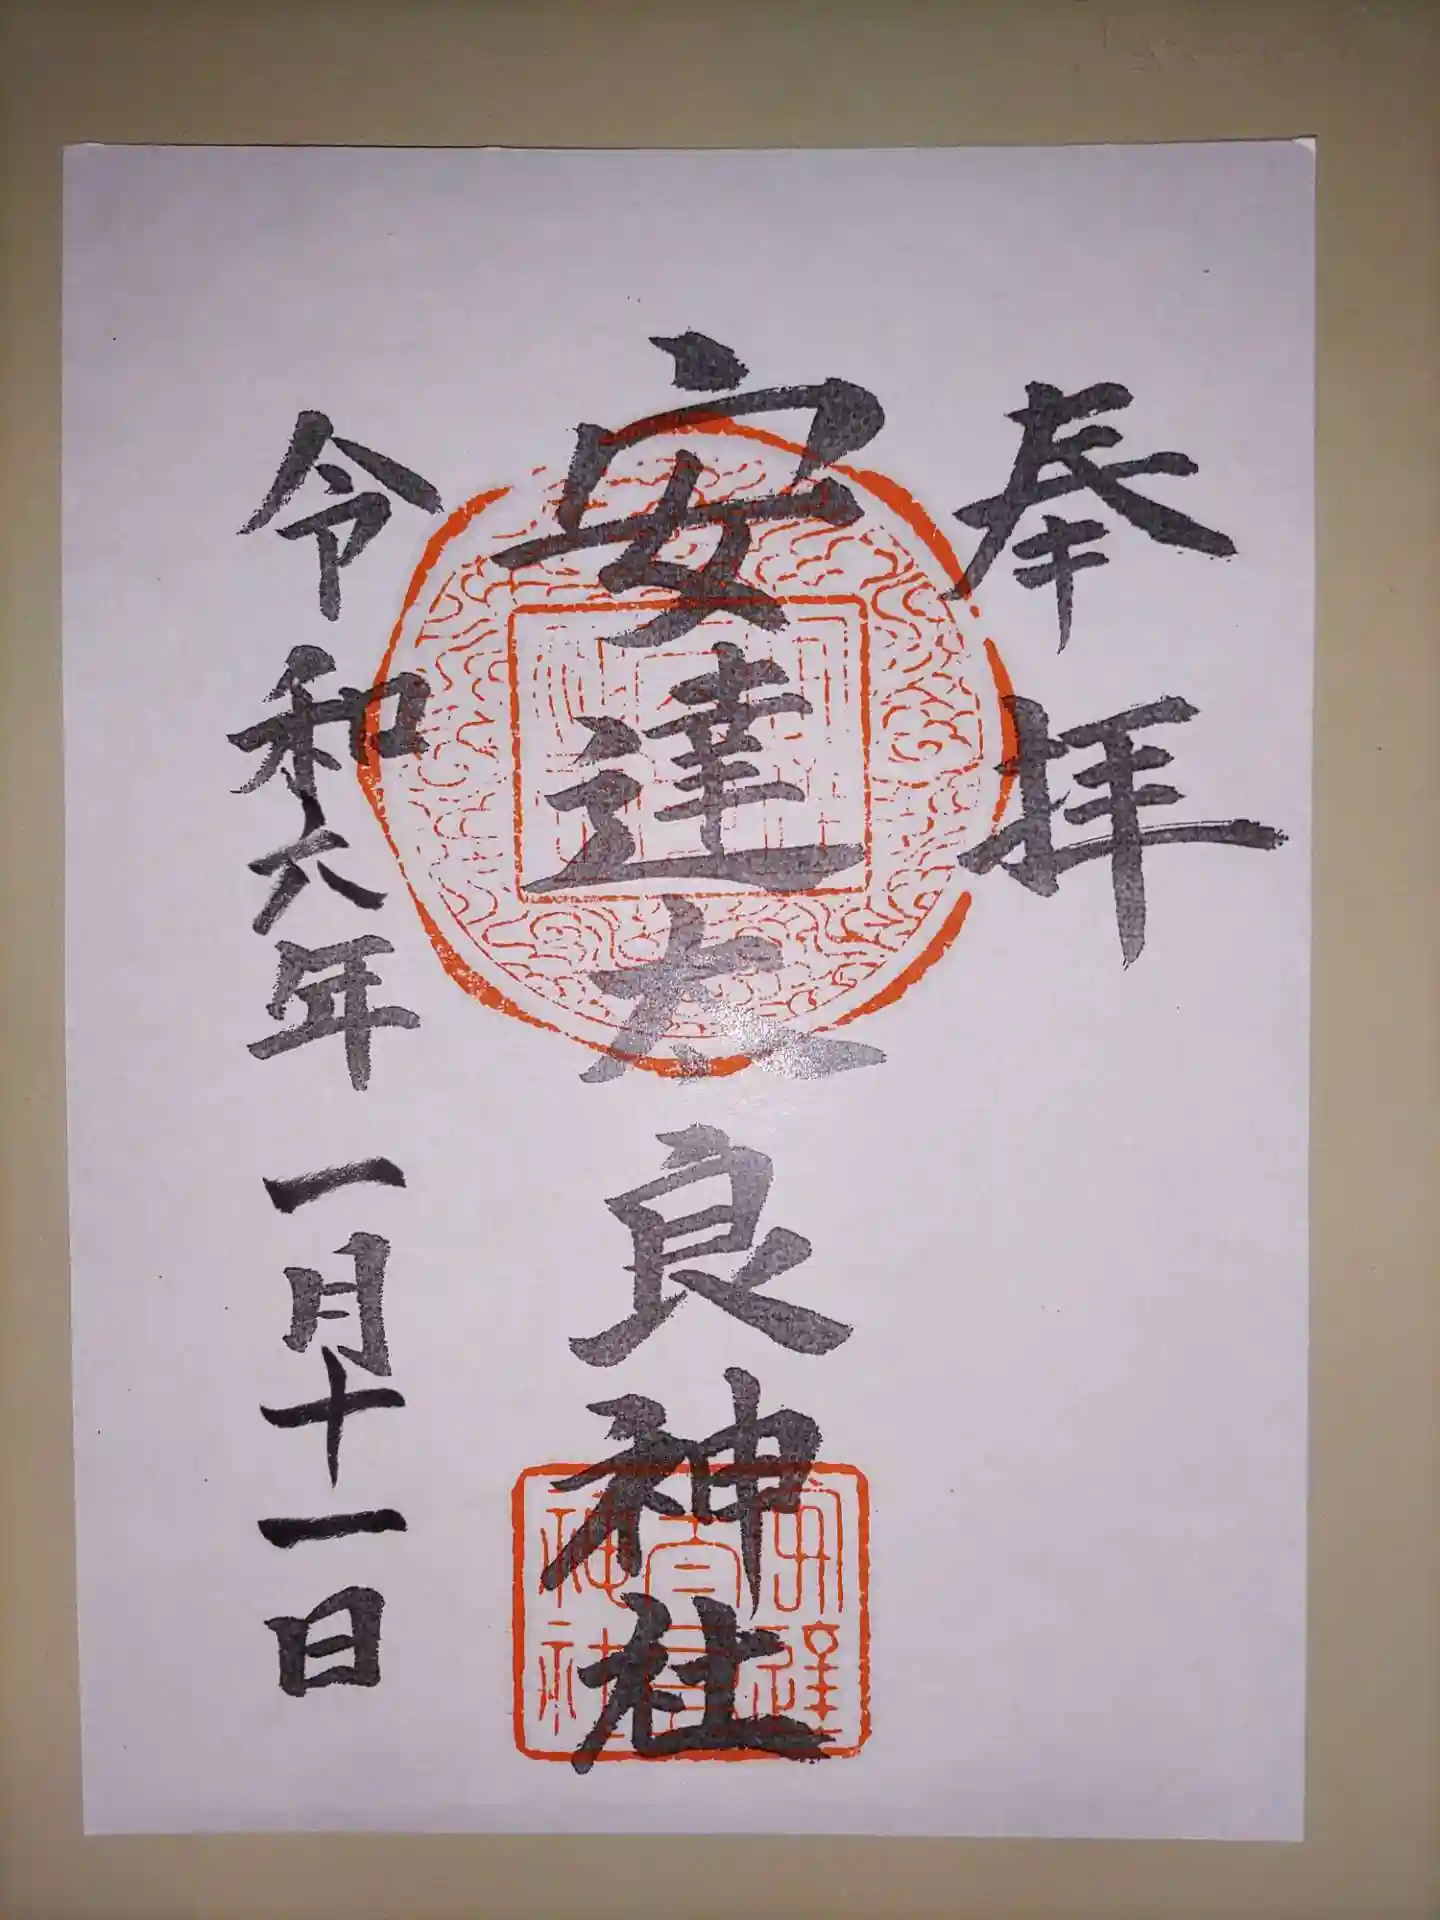 奉拝
安達太良神社
令和六年一月十一日
安達
太良
神社